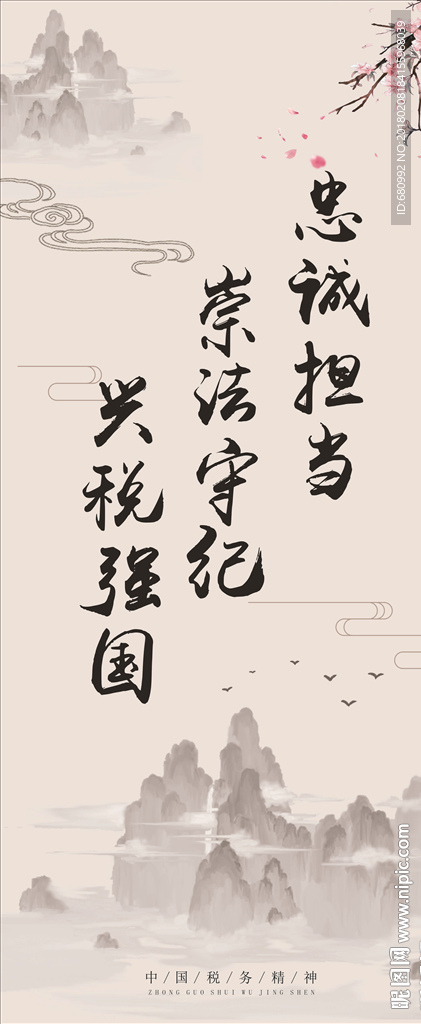 忠诚担当
崇法守纪
兴税强国
中/国/税/务/精/神
ZHONG GUO SHUI WU JING SHEN
ID:680992 NO:20180208184155968039
昵图网 www.nipic.com